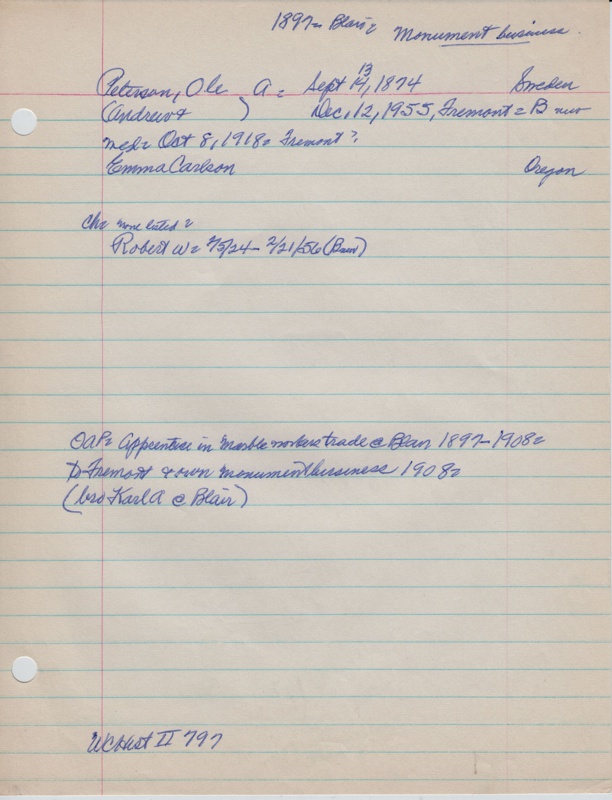 1897= Blair= Monument business
13
Peterson, Ole A= Sept 14, 1874 Sweden
(Andrew & ) Dec, 12, 1955, Fremont = B
med= Oct 8, 1918= Fremont?.
Emma Carlson Oregon
Ch= none listed=
Robert W= 7/5/24- 2/21/56 (Baw)
OAP= Apprentice in marble workers trade @ Blair 1897-1908=
to Fremont & own monument bussiness 1908=
(bro Karl A @ Blair)
WC Hist II 797